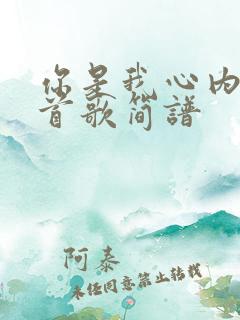 你是我心内
首歌简谱
阿泰
未经同意禁止转载